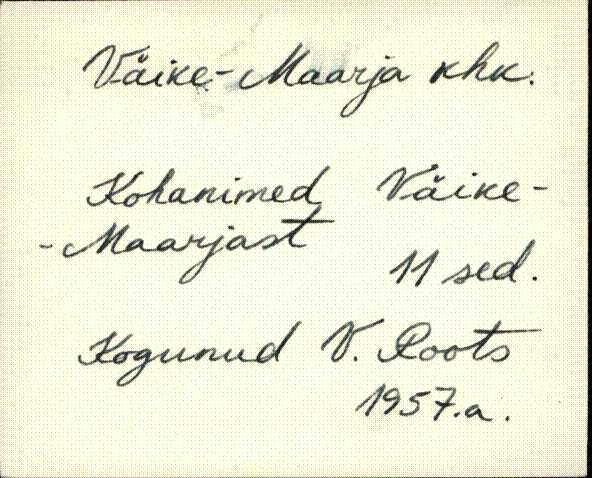 Väike-Maarja khk.
Kohanimed Väike-
-Maarjast
11 sed.
Kogunud V. Roots
1957.a.